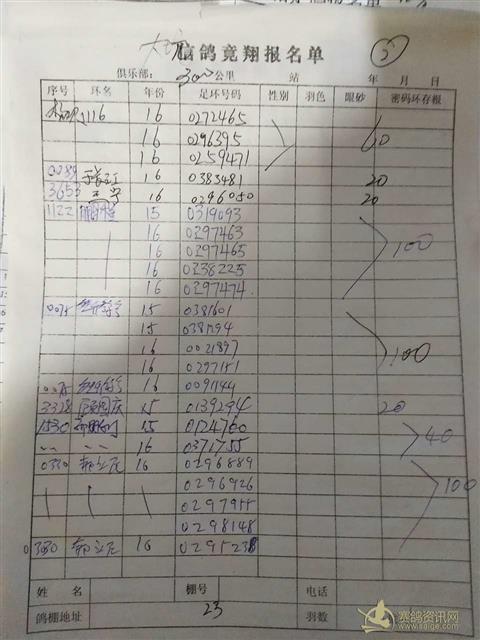 信鸽竞翔报名单
俱乐部: 300公里 站 年 月 日
序号 环名 年份 足环号码 性别 羽色 眼砂 密码环存根
1116 16 0272465
16 0296395 60
16 0259471
0089 16 0383481 20
3653 16 0296050 20
1122 15 0319093
16 0297463
16 0297465 100
16 0238225
16 0297474
0075 15 0381601
15
16 0021897
16 0297151 100
0075 16 0091144
3328 国庆 15 0139294 20
1530 15 0124760
〃 〃 〃 16 0371755 40
0330 郝立元 16 0296889
0296926 100
0297955
0298148
0330 郝立元 16 0295238
姓名 棚号 电话
鸽棚地址 23 羽数
赛鸽资讯网
www.saige.com